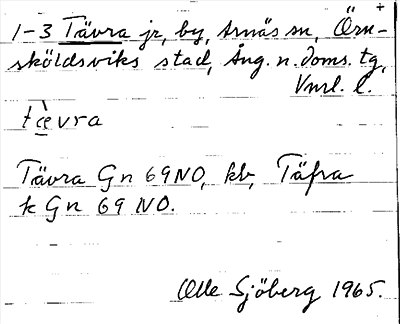 +
1-3 Tävra jr, by, Arnäs sn, Örn-
sköldsviks stad, Ång. n. doms. tg,
Vnrl. l.
tævra
Tävra Gn 69 NO, kb, Täfra
k Gn 69 NO.
Olle Sjöberg 1965.